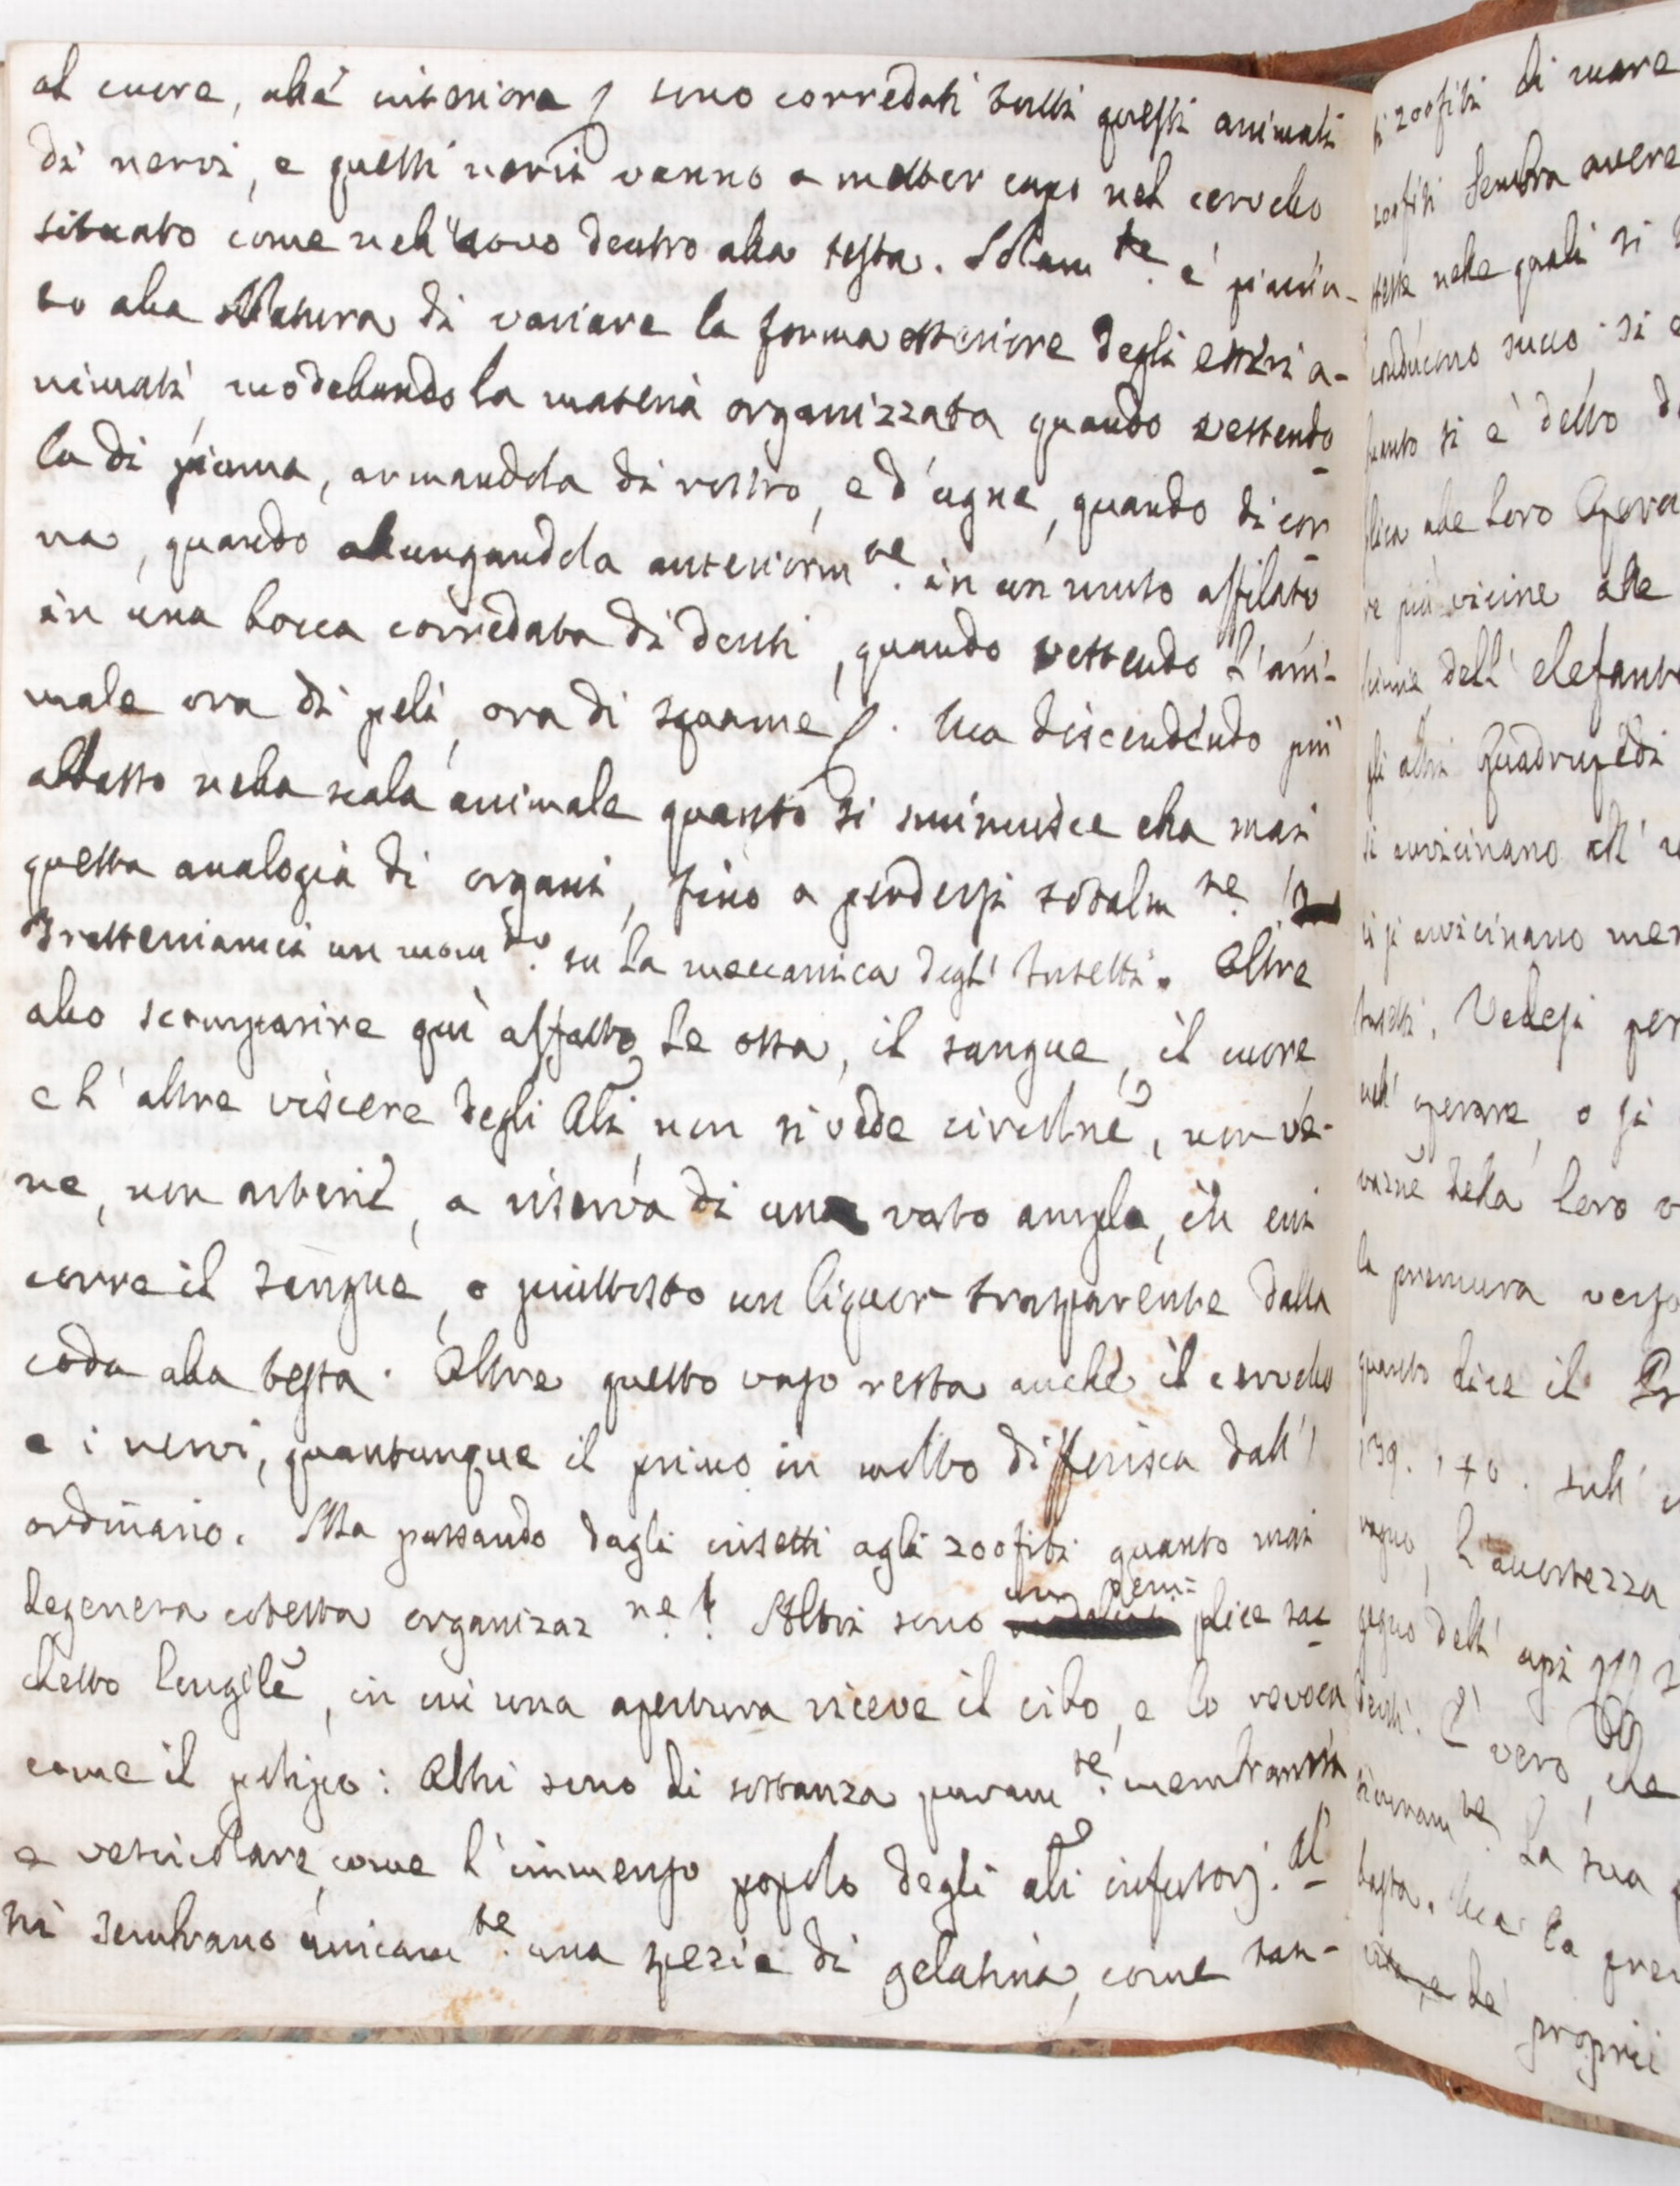 al cuore, alle interiora / sono corredati tutti questi animali
di nervi, e questi nervi vanno a metter capo nel cervello
situato come nell'uovo dentro alla testa. Solam.te è piaciu-
to alla Natura di variare la forma esteriore degli esseri a-
nimati, modellando la materia organizzata quando vestendo
la di piuma, armandola di rostro, e d'ugne, quando di cor
na, quando allungandola anteriorm.te in un muso affilato
in una bocca corredata di denti, quando vestendo l'ani-
male ora di peli, ora di squame /. Ma discendendo più
abbasso nella scala animale quanto si sminuisce ella mai
questa analogia di organi, fino a perdersi totalm.te!
Tratteniamci un mom.to su la meccanica degl'Insetti. Oltre
allo scomparire quì affatto le ossa, il sangue, il cuore
e l'altre viscere degli Ali, non si vede circolne, non ve-
ne, non arterie, a riserva di un vaso ampla, in cui
corre il sangue, o piuttosto un liquor trasparente dalla
coda alla testa. Oltre questo vaso resta anche il cervello
e i nervi, quantunque il primo in molto differisca dall'
ordinario. Ma passando dagli insetti agli zoofiti quanto mai
degenera cotesta organizaz.ne! Altri sono un sem= plice sac
chetto lungile, in cui una apertura riceve il cibo, e lo revoca
come il polipo: Altri sono di sostanza puram.te membranosa
e vescicolare, come l'immenso popolo degli ali infusorj. Al
tri sembrano unicam.te una spezie di gelatina, come tan-
ti zoofiti di mare
zoofiti sembra avere
teste nelle quali si
conducono succo. si
quanto si è detto d
plica alle loro Opera
re più vicine alle
scimie, dell'elefant
gli altri Quadrupedi
si avvicinano all'
si avvicinano men
Insetti. Vedesi per
nell'operare, o si
della loro v
la premura verso
quanto dice il
139. 140. sull'
l'avvertezza
dell'api
È vero, che
La sua
basta. Ma la pre
proprii